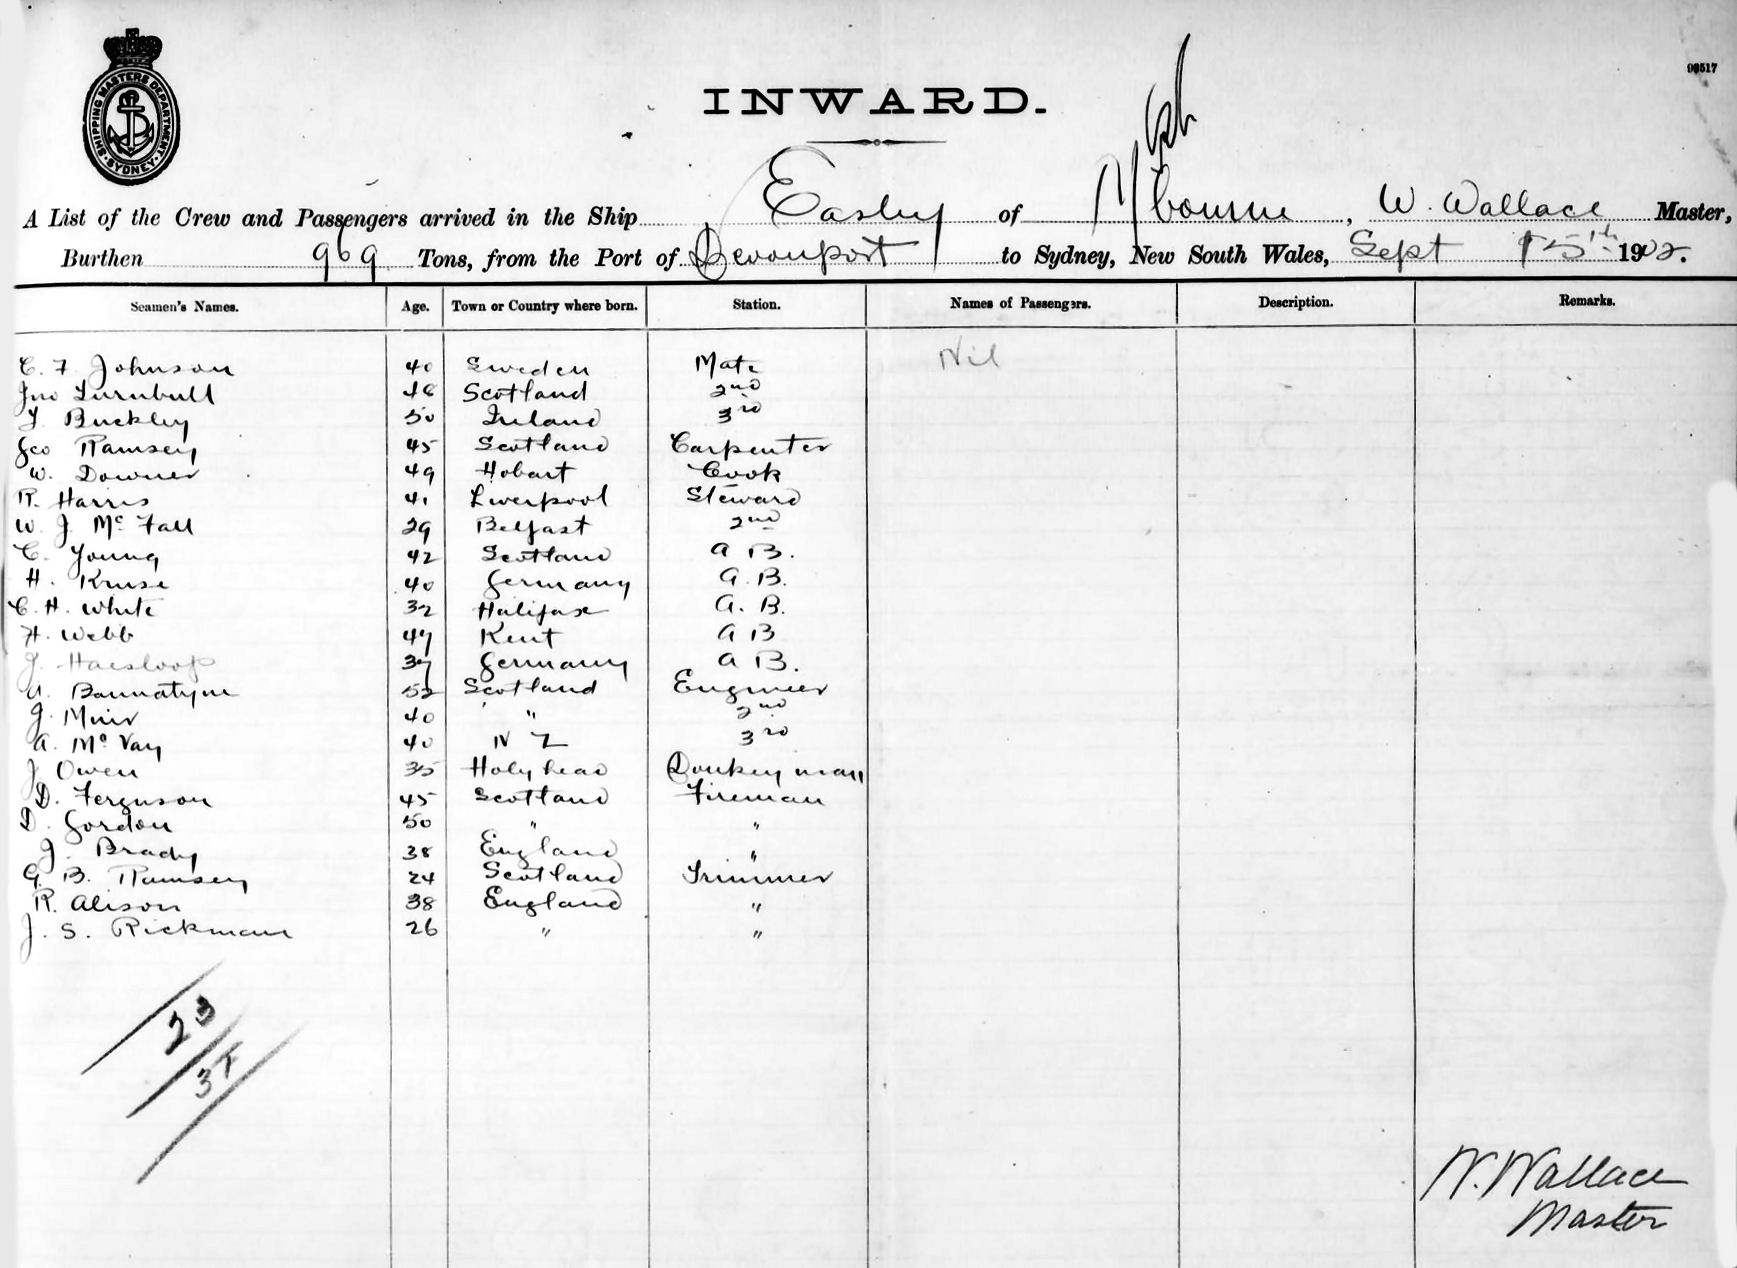 SHIPPING MASTERS DEPARTMENT. SYDNEY
98517
INWARD.
A List of the Crew and Passengers arrived in the Ship Easby of M'bourne, W. Wallace Master,
Burthen 969 Tons, from the Port of Devonport to Sydney, New South Wales, Sept 15th 1902.
Seamen's Names. Age. Town or Country where born. Station. Names of Passengers. Description. Remarks.
C. F. Johnson 40 Sweden Mate Nil
Jno Turnbull 48 Scotland 2nd
T. Buckley 50 Ireland 3rd
Geo Ramsey 45 Scotland Carpenter
W. Downer 49 Hobart Cook
R. Harris 41 Liverpool Steward
W. J. Mc Fall 29 Belfast 2nd
C. Young 42 Scotland A B.
H. Kruse 40 Germany A. B.
C. H. White 32 Halifax A. B.
H. Webb 47 Kent A B
J. Haesloop 37 Germany A B.
A. Bannatyne 52 Scotland Engineer
J. Muir 40 " 2nd
A. Mc Vay 40 N Z 3rd
J. Owen 35 Holyhead Donkeyman
D. Ferguson 45 Scotland Fireman
D. Gordon 50 " "
J. Brady 38 England "
G. B. Ramsey 24 Scotland Trimmer
R. Alison 38 England "
J. S. Rickman 26 " "
23
W. Wallace
Master